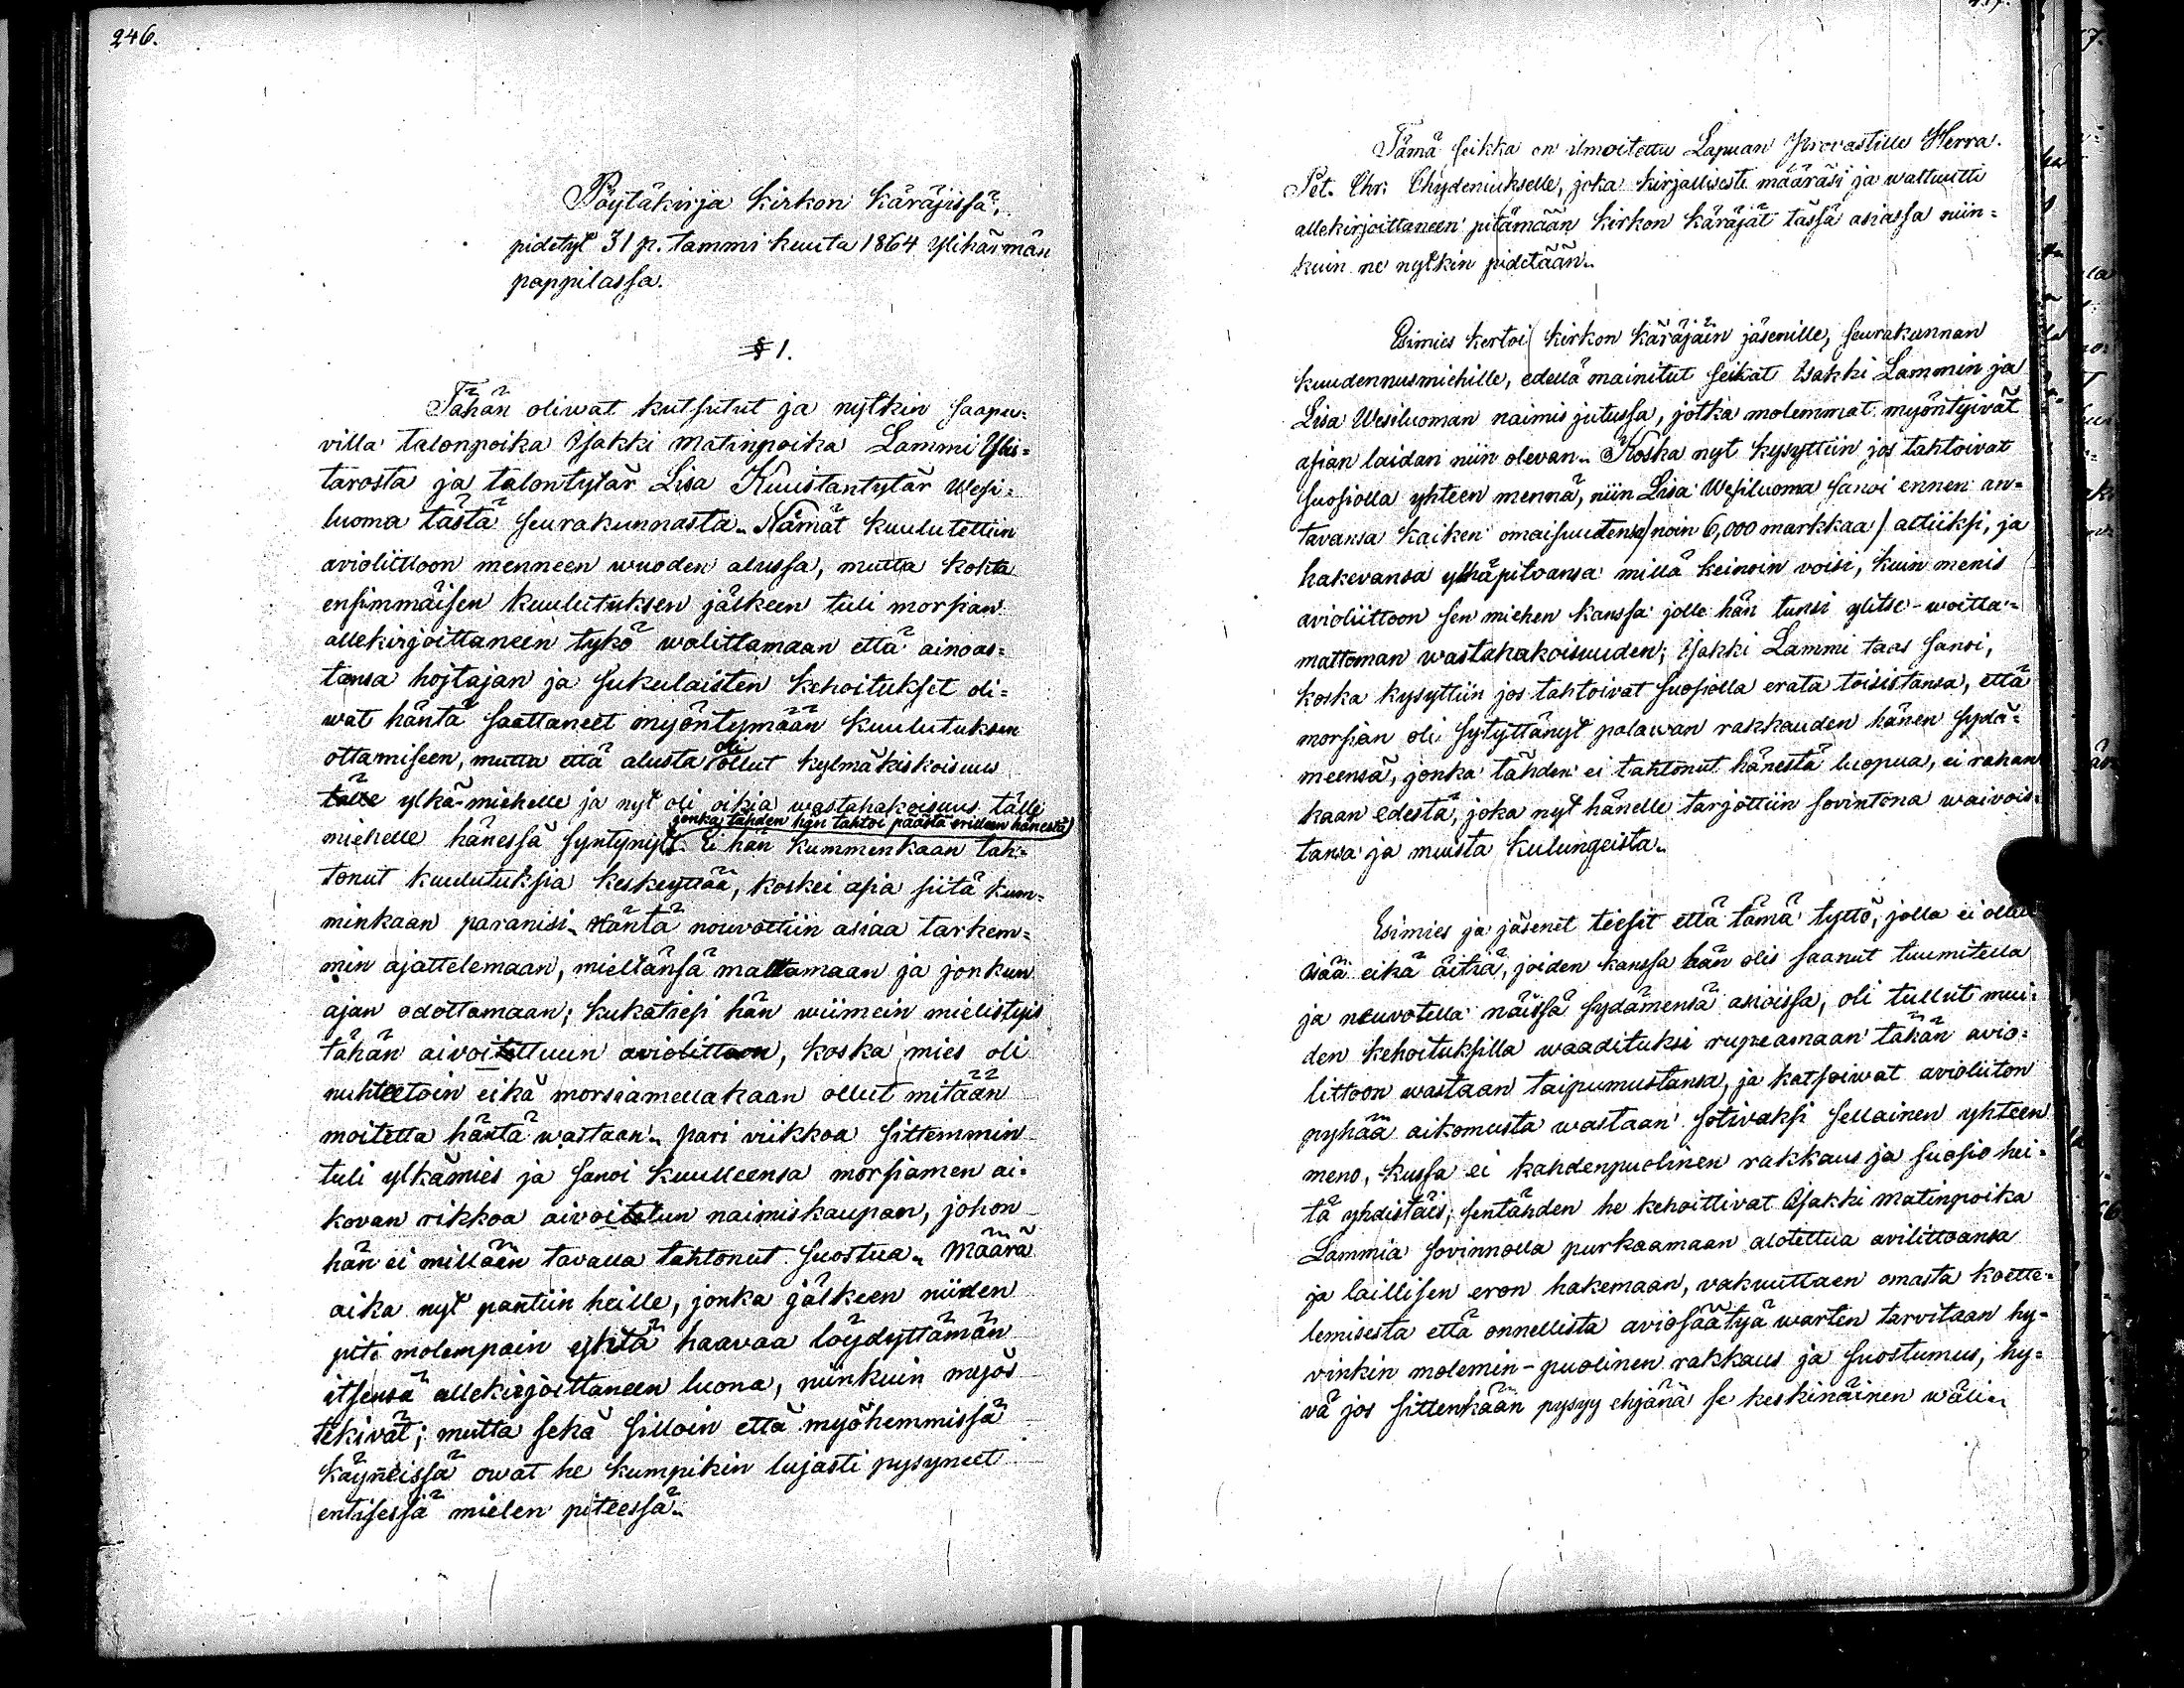 246.
Pöytäkirja kirkon käräjissä,
pidetyt 31 p. tammi kuuta 1864 Ylihärmän
pappilassa.
§ 1.
Tähän oliwat kutsutut ja nytkin saapu=
villa talonpoika Isakki Matinpoika Lammi Ylis=
tarosta ja talontytär Lisa Kuustantytär Wesi=
luoma tästä seurakunnasta. Nämät kuulutettiin
avioliittoon menneen wuoden alussa, mutta kohta
ensimmäisen kuulutuksen jälkeen tuli morsian
allekirjoittaneen tykö walittamaan että ainoas=
tansa hojtajan ja sukulaisten kehoitukset oli=
wat häntä saattaneet myöntymään kuulutuksen
ottamiseen, mutta että alusta oli ollut kylmäkiskoisuus
tälle ylkä-miehelle ja nyt oli oikia wastahakoisuus tälle
jonka tähden hän tahtoi päästä erilleen hänestä
miehelle hänessä syntynyt. Ei hän kummenkaan tah=
tonut kuulutuksia keskeyttää, koskei asia siitä kum=
minkaan paranisi. Häntä nouvottiin asiaa tarkem=
min ajattelemaan, mieltänsä malttamaan ja jonkun
ajan odottamaan; kukatiesi hän wiimein mielistyis
tähän aivoitettuun aviolittoon, koska mies oli
nuhteetoin eikä morsiamellakaan ollut mitään
moitetta häntä wastaan. Pari viikkoa sittemmin
tuli ylkämies ja sanoi kuulleensa morsiamen ai=
kovan rikkoa aivoitetun naimiskaupan, johon
hän ei millään tavalla tahtonut suostua. Määrä
aika nyt pantiin heille, jonka jälkeen niiden
piti molempain yhtä haavaa löydyttämän
itsensä allekirjoittaneen luona, niinkuin myös
tekivät; mutta sekä silloin että myöhemmissä
käynneissä owat he kumpikin lujasti pysyneet
entisessä mielen piteessä.
Tämä seikka on ilmoitettu Lapuan Provastille Herra
Pet. Chr. Chydeniukselle, joka kirjallisesti määräsi ja waltuutti
allekirjoittaneen pitämään kirkon käräjät tässä asiassa niin=
kuin ne nytkin pidetään.
Esimies kertoi kirkon käräjäin jäsenille, seurakunnan
kuudennusmiehille, edellä mainitut seikat Isakki Lammin ja
Lisa Wesiluoman naimis jutussa, jotka molemmat myöntyivät
asian laidan niin olevan. Koska nyt kysyttiin jos tahtoivat
suosiolla yhteen mennä, niin Lisa Wesiluoma sanoi ennen an=
tavansa kaiken omaisuutensa / noin 6,000 markkaa / alttiiksi, ja
hakevansa ylhäpitoansa millä keinoin voisi, kuin menis
avioliittoon sen miehen kanssa jolle hän tunsi ylitse-woitta=
mattoman wastahakoisuuden; Isakki Lammi taas sanoi,
koska kysyttiin jos tahtoivat suosiolla erata toisistansa, että
morsian oli sytyttänyt palawan rakkauden hänen sydä=
meensä, jonka tähden ei tahtonut hänestä luopua, ei rahan
kaan edestä, joka nyt hänelle tarjottiin sovintona waivois=
tansa ja muista kulungeista.
Esimies ja jäsenet tiesit että tämä tyttö, jolla ei ollut
isää eikä äitiä, joiden kanssa hän olis saanut tuumitella
ja neuvotella näissä sydämensä asioissa, oli tullut mui=
den kehoituksilla waadituksi rupeamaan tähän avio=
littoon wastaan taipumustansa, ja katsoiwat avioliiton
pyhää aikomusta wastaan sotivaksi sellainen yhteen
meno, kussa ei kahdenpuolinen rakkaus ja suosio hei=
tä yhdistäis; sentähden he kehoittivat Isakki Matinpoika
Lammia sovinnolla purkaamaan alotettua avilittoansa
ja laillisen eron hakemaan, vakuuttaen omasta koette=
lemisesta että onnellista aviosäätyä warten tarvitaan hy=
vinkin molemin-puolinen rakkaus ja suostumus, hy=
vä jos sittenkään pysyy ehjänä se keskinäinen wäli.